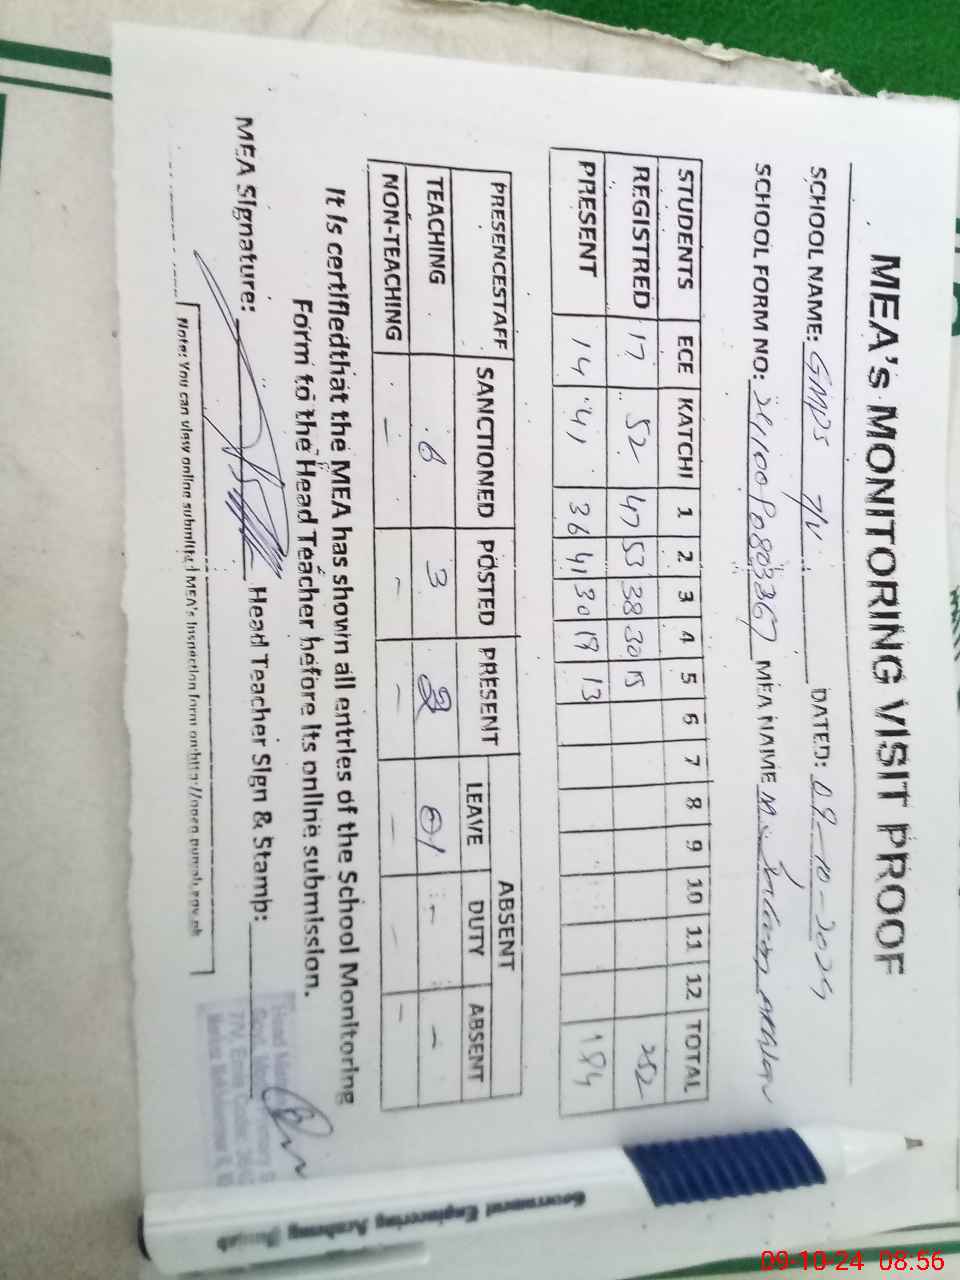 MEA's MONITORING VISIT PROOF
SCHOOL NAME: GMPS 7/V DATED: 09-10-2024
SCHOOL FORM NO: MEA NAME
STUDENTS ECE KATCHI 1 2 3 4 5 6 7 8 9 10 11 12 TOTAL
REGISTRED 17 52 47 53 38 30 15 252
PRESENT 14 41 36 41 30 19 13 194
PRESENCESTAFF SANCTIONED POSTED PRESENT ABSENT
LEAVE DUTY ABSENT
TEACHING 6 3 2 01 - -
NON-TEACHING - - - - - -
It is certifiedthat the MEA has shown all entries of the School Monitoring
Form to the Head Teacher before its online submission.
MEA Signature: Head Teacher Sign & Stamp:
Note: You can view online submitted MEA's Inspection form on
Government Engineering Academy Punjab
09-10-24 08:56